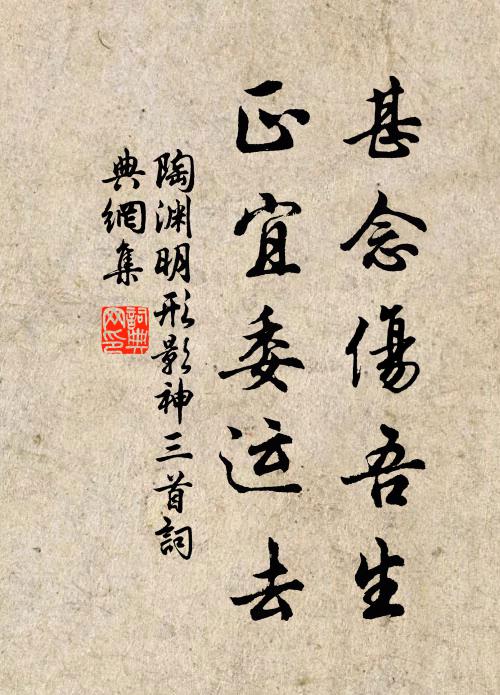 甚念傷吾生
正宜委运去
陶渊明形影神三首詞
典網集
詞典
网印